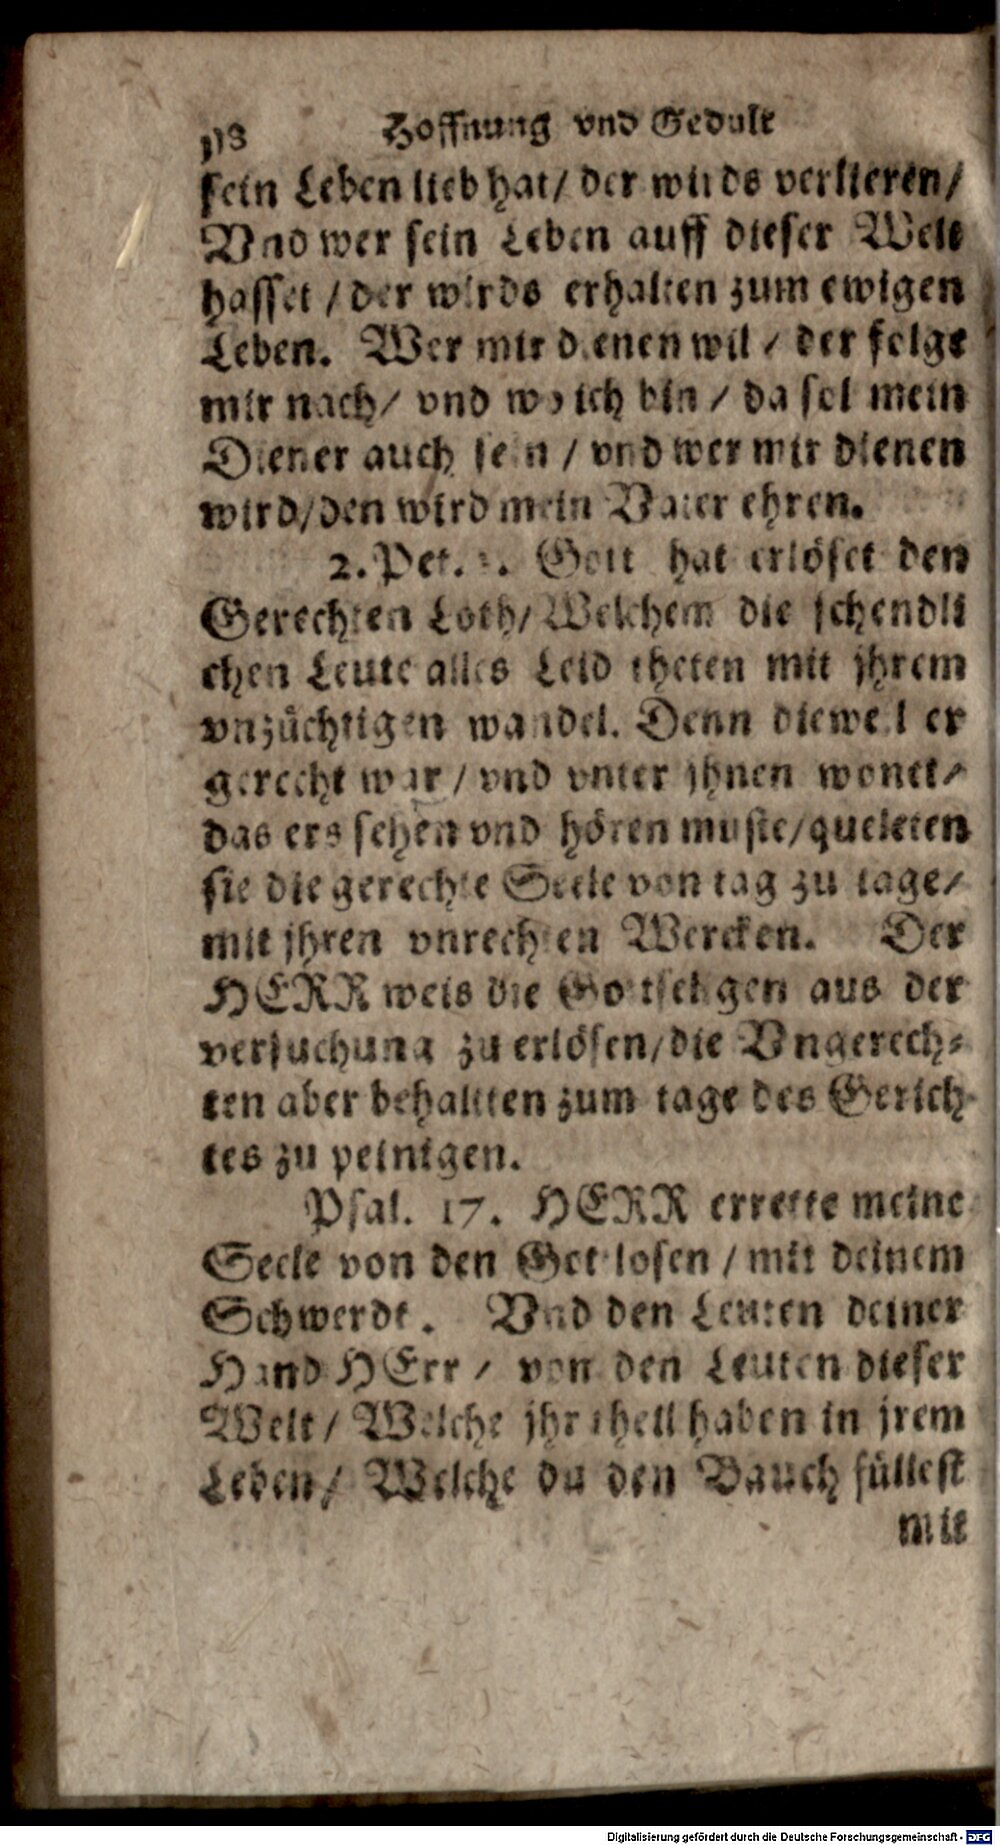 Hoffnung vnd Gedult
sein Leben lieb hat/ der wirds verlieren/
Vnd wer sein Leben auff dieser Welt
hasset / der wirds erhalten zum ewigen
Leben. Wer mir dienen wil / der folge
mir nach/ vnd wo ich bin / da sol mein
Diener auch sein / vnd wer mir dienen
wird/den wird mein Vater ehren.
2. Pet. Gott hat erlöset den
Gerechten Loth/ Welchem die schendli
chen Leute alles Leid theten mit jhrem
vnzüchtigen wandel. Denn dieweil er
gerecht war / vnd vnter jhnen wonet/
das ers sehen vnd hören muste/queleten
sie die gerechte Seele von tag zu tage/
mit jhren vnrechten Wercken. Der
HERR weis die Gottseligen aus der
versuchung zu erlösen/die Vngerech-
ten aber behaltten zum tage des Gerich-
tes zu peinigen.
Psal. 17. HERR errette meine
Seele von den Gottlosen / mit deinem
Schwerdt. Vnd den Leuten deiner
Hand HErr / von den Leuten dieser
Welt / Welche jhr theil haben in jrem
Leben/ Welche du den Bauch füllest
mit
Digitalisierung gefördert durch die Deutsche Forschungsgemeinschaft - DFG